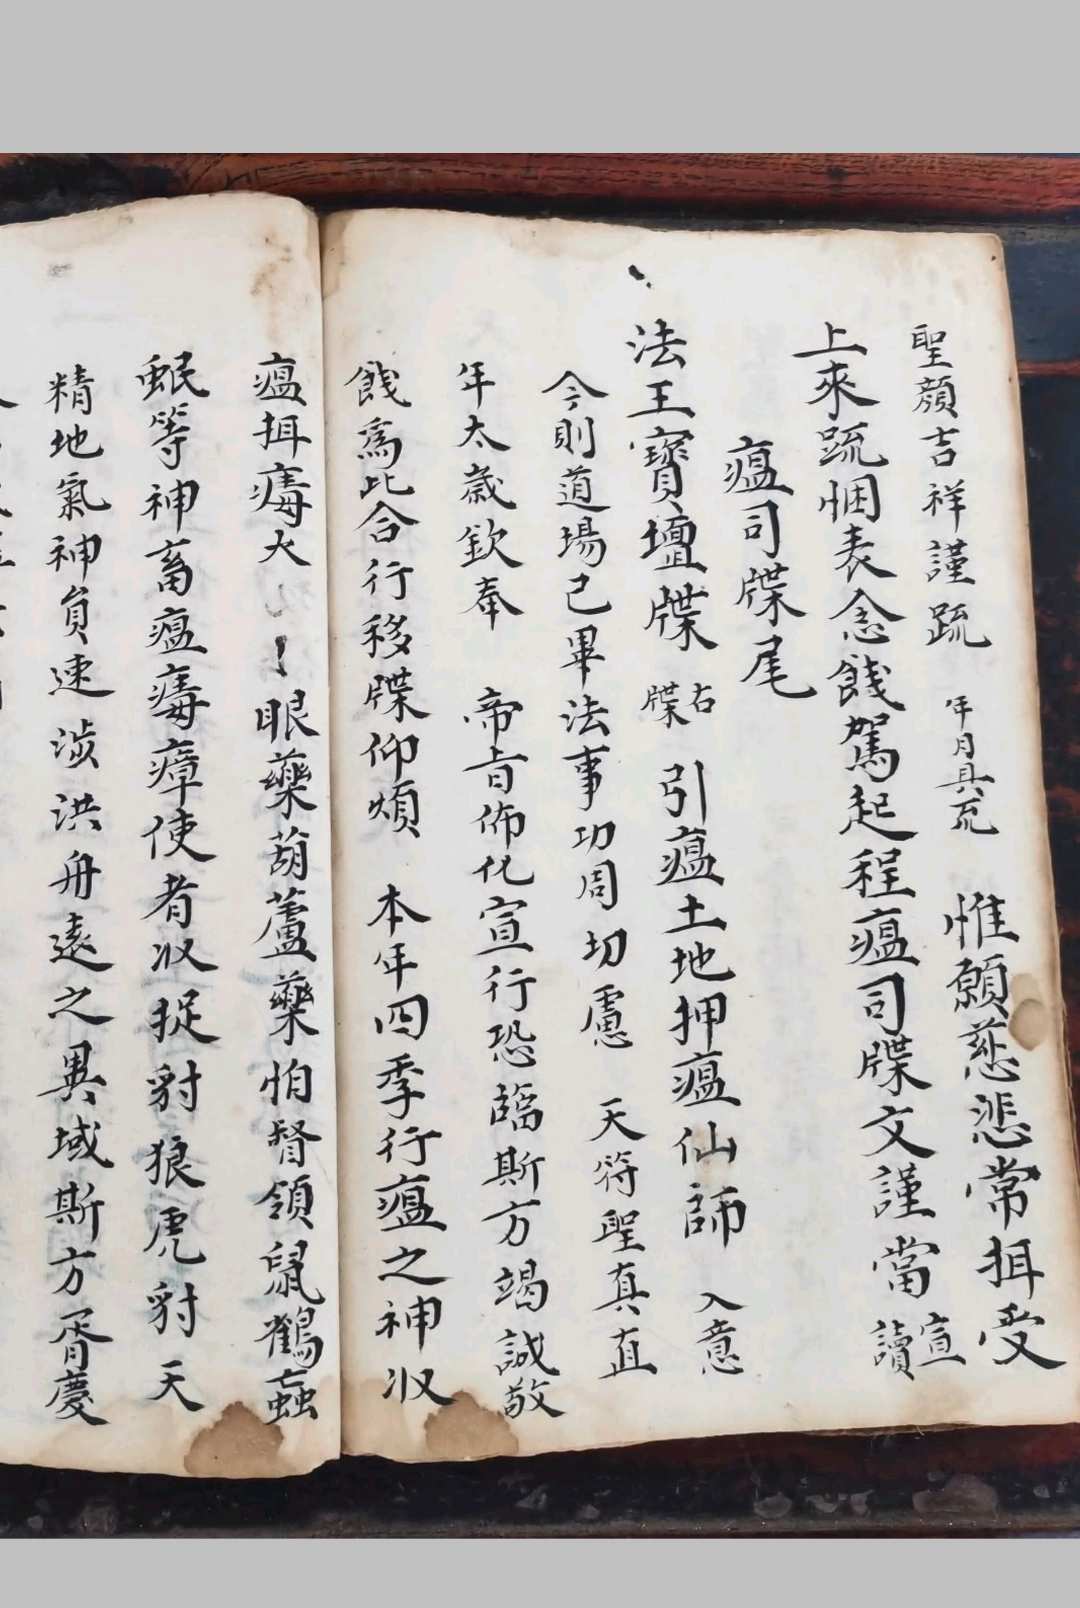 聖顏吉祥謹疏 年月具疏 惟願慈悲常揖受
上來疏悃表念餞駕起程瘟司牒文謹當宣讀
瘟司牒尾
法王寶壇牒 右牒 引瘟土地押瘟仙師 入意
今則道場已畢法事功周切慮 天符聖真直
年太歲欽奉 帝旨佈化宣行恐臨斯方竭誠敬
餞為此合行移牒仰煩 本年四季行瘟之神收
瘟揖毒大 眼藥葫蘆藥怕督領鼠鶴蟲
蚊等神畜瘟毒瘴使者收捉豺狼虎豺天
精地氣神負速涉洪舟遠之異域斯方胥慶